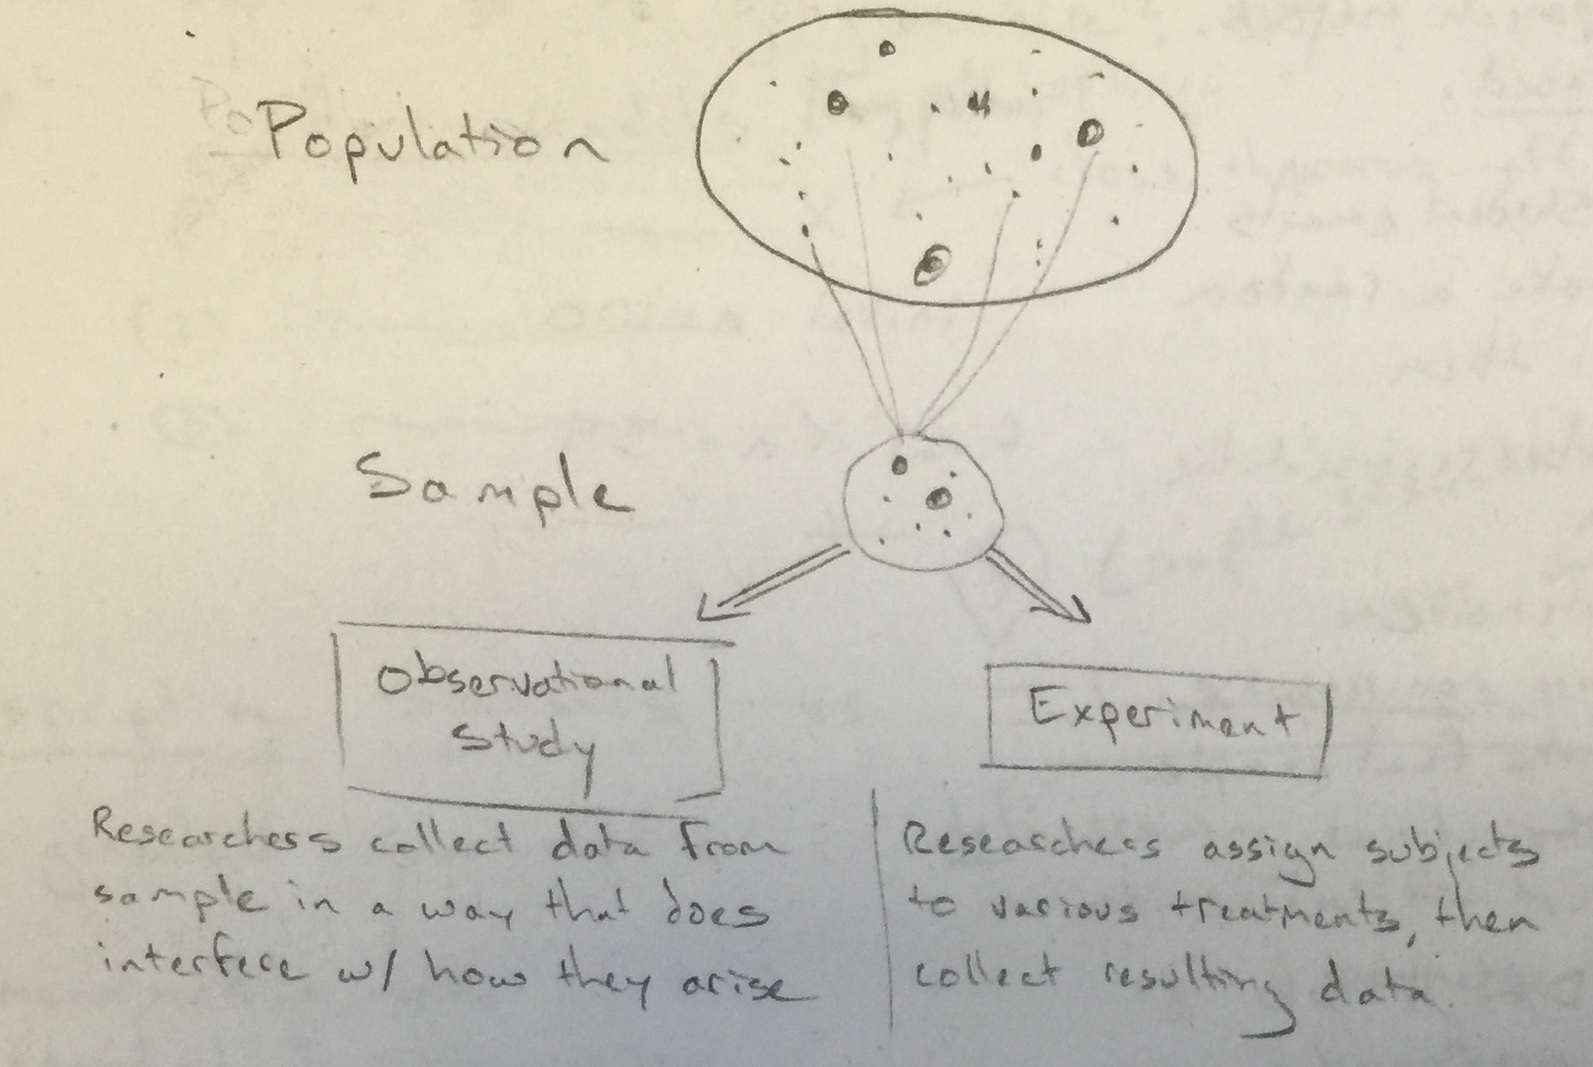 Population
Sample
Observational
Study
Experiment
Researchers collect data from
sample in a way that does
interfere w/ how they arise
Researchers assign subjects
to various treatments, then
collect resulting data.